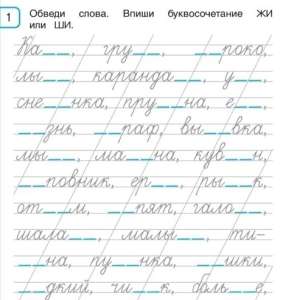 1 Обведи слова. Впиши буквосочетание ЖИ
или ШИ.
Ка__, гру__, __роко,
лы__, каранда__, у__,
сне__нка, пру__на, е__,
__знь, __раф, вы__вка,
мы__, ма__на, кув__н,
__повник, ер__, ры__к,
от__м, __пят, гало__,
шала__, малы__, ти-
__на, пу__нка, __шки,
__дкий, чи__к, боль__е,